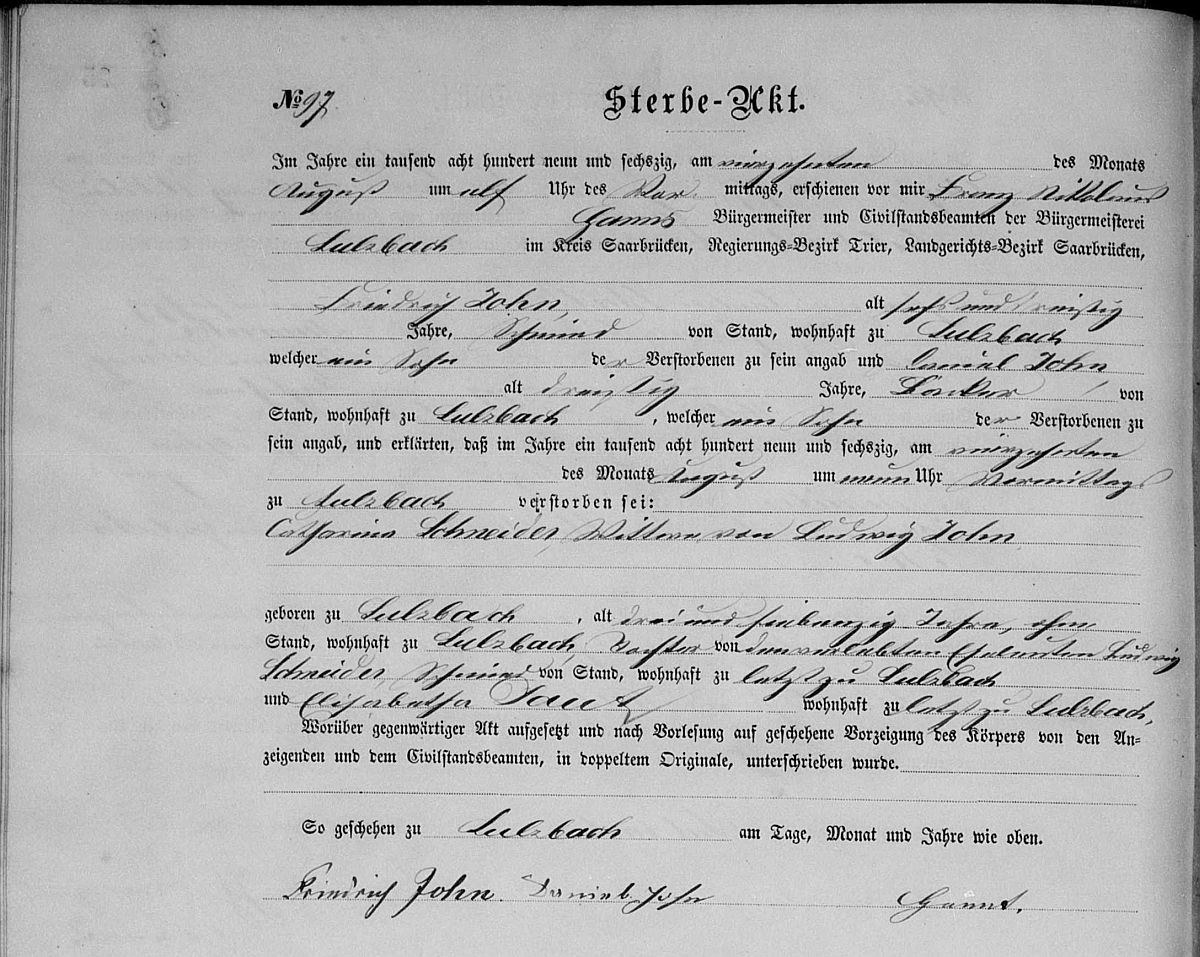 No 97. Sterbe-Akt.
Im Jahre ein tausend acht hundert neun und sechszig, am vierzehnten des Monats
August um elf Uhr des Vor mittags, erschienen vor mir Franz Nikolaus
Bürgermeister und Civilstandsbeamten der Bürgermeisterei
Sulzbach im Kreis Saarbrücken, Regierungs-Bezirk Trier, Landgerichts-Bezirk Saarbrücken,
Friedrich John, alt sechs und dreißig
Jahre, Schmied von Stand, wohnhaft zu Sulzbach
welcher ein Sohn der Verstorbenen zu sein angab und Daniel John
alt dreißig Jahre, von
Stand, wohnhaft zu Sulzbach, welcher ein Sohn der Verstorbenen zu
sein angab, und erklärten, daß im Jahre ein tausend acht hundert neun und sechszig, am vierzehnten
des Monats August um neun Uhr Vormittags
zu Sulzbach verstorben sei:
Catharina Schneider, Wittwe von Ludwig John
geboren zu Sulzbach, alt drei und siebenzig Jahre, ohne
Stand, wohnhaft zu Sulzbach, Tochter von den verlebten Eheleuten Ludwig
Schneider, Schmied von Stand, wohnhaft zu letzt zu Sulzbach
und Elisabetha wohnhaft zu letzt zu Sulzbach,
Worüber gegenwärtiger Akt aufgesetzt und nach Vorlesung auf geschehene Vorzeigung des Körpers von den An-
zeigenden und dem Civilstandsbeamten, in doppeltem Originale, unterschrieben wurde.
So geschehen zu Sulzbach am Tage, Monat und Jahre wie oben.
Friedrich John. Daniel John